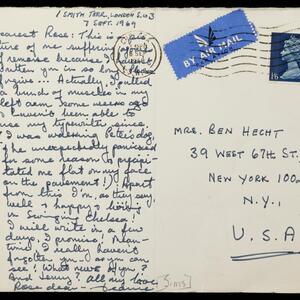 1 SMITH TERR., LONDON S.W.3
7 SEPT. 1969
Dearest Rose: This is a pic-
ture of me suffering
of remorse because I haven't
written you in so long. Please
forgive... Actually, I pulled
a bunch of muscles in my
left arm some weeks ago
& haven't been able to
use my typewriter since.
(I was walking Peter's dog,
& he unexpectedly panicked
for some reason & precipi-
tated me flat on my face
on the pavement!) Apart
from this I'm, as they say,
well & happy & living
in swinging Chelsea!
I will write in a few
days, I promise! Mean-
time I really haven't
forgotten you - as you can
see! What news of you?
And Jenny? All my love,
Rose dear --
[Sims]
BY AIR MAIL
1/6
MRS. BEN HECHT
39 WEST 67TH ST.
NEW YORK 100
N.Y.
U.S.A